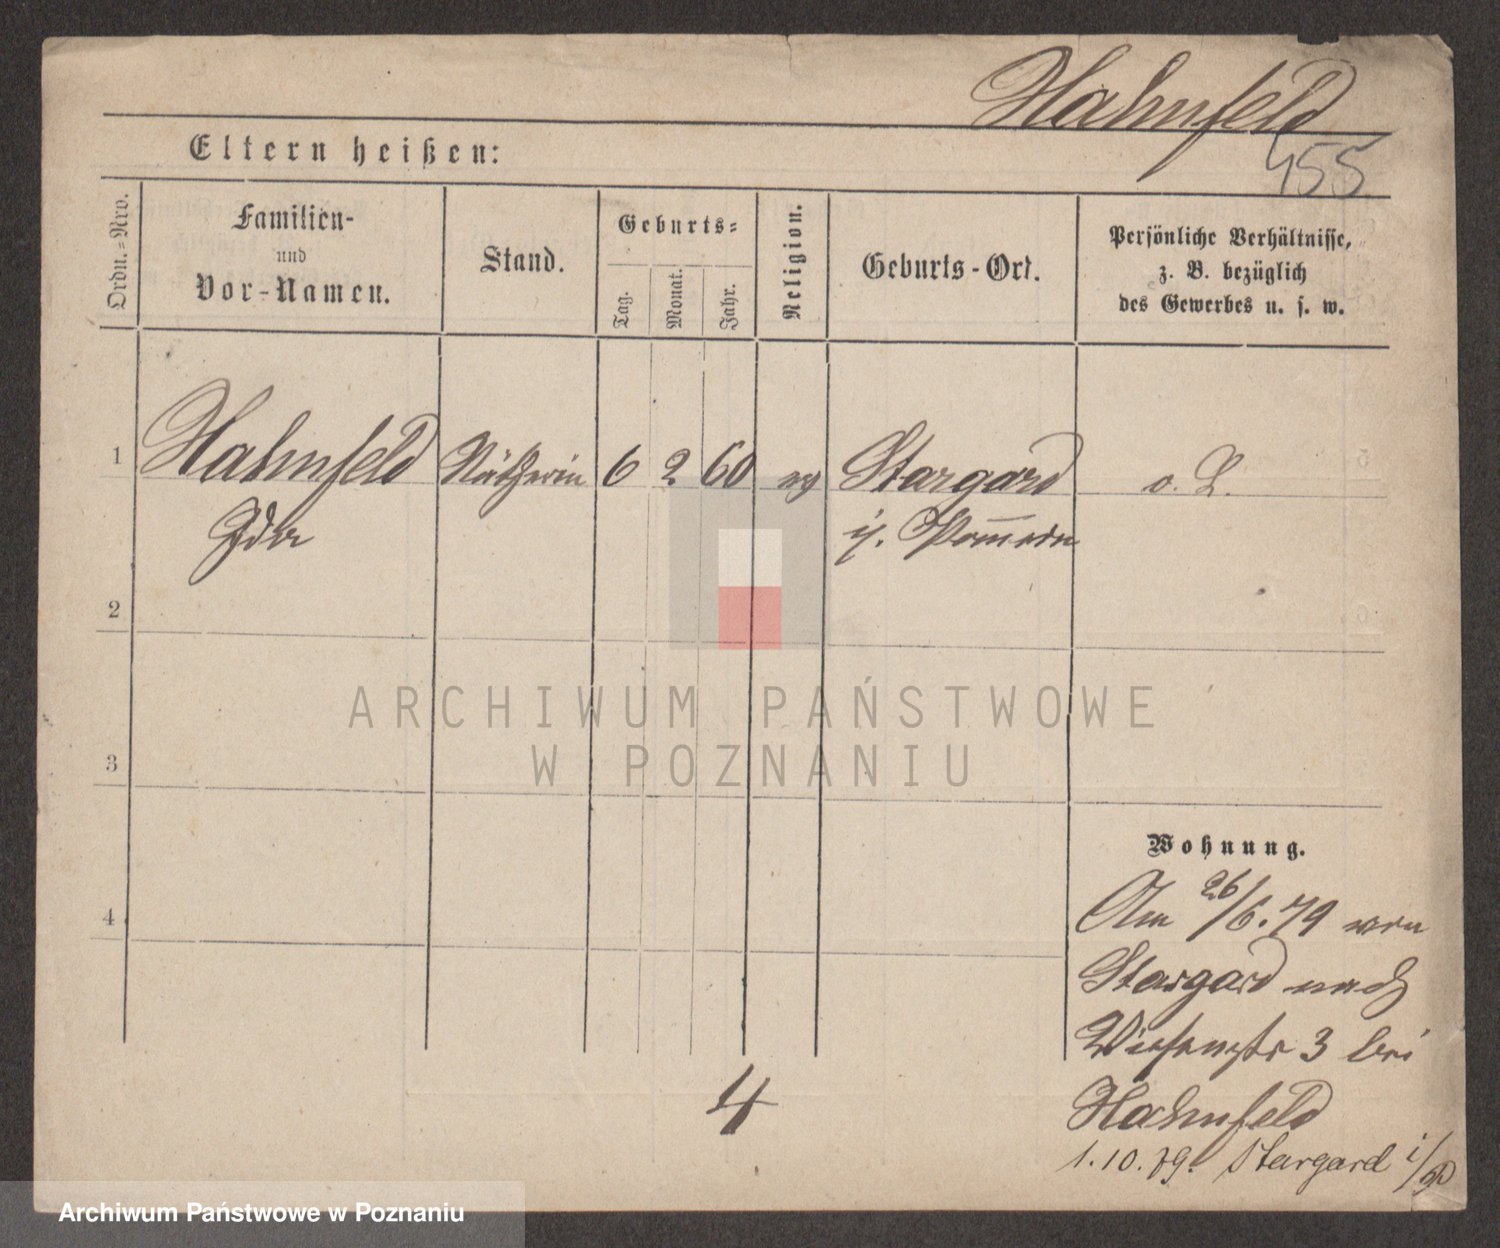 Hahnfeld
455
Eltern heißen:
Ordn.=Nro.
Familien-
und
Vor-Namen.
Stand.
Geburts=
Tag.
Monat.
Jahr.
Religion.
Geburts-Ort.
Persönliche Verhältnisse,
z. B. bezüglich
des Gewerbes u. s. w.
1 Hahnfeld Nätherin 6 2 60 ev Stargard o. L.
Ida i. Pom̅ern
2
ARCHIWUM PAŃSTWOWE
W POZNANIU
3
Wohnung.
4
Am 26/6.79 von
Stargard nach
Wiesenstr 3 bei
Hahnfeld
1.10.79. Stargard i/P
4
Archiwum Państwowe w Poznaniu